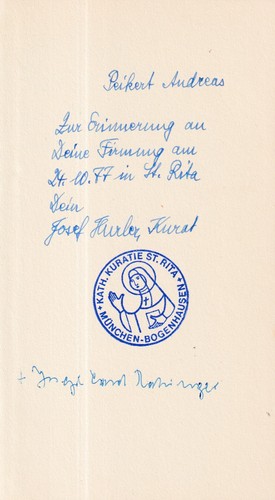 Peikert Andreas
Zur Erinnerung an
Deine Firmung am
24.10.77 in St. Rita
Dein
Josef Hurler, Kurat
KATH. KURATIE ST. RITA
MÜNCHEN-BOGENHAUSEN
+ Joseph Card Ratzinger